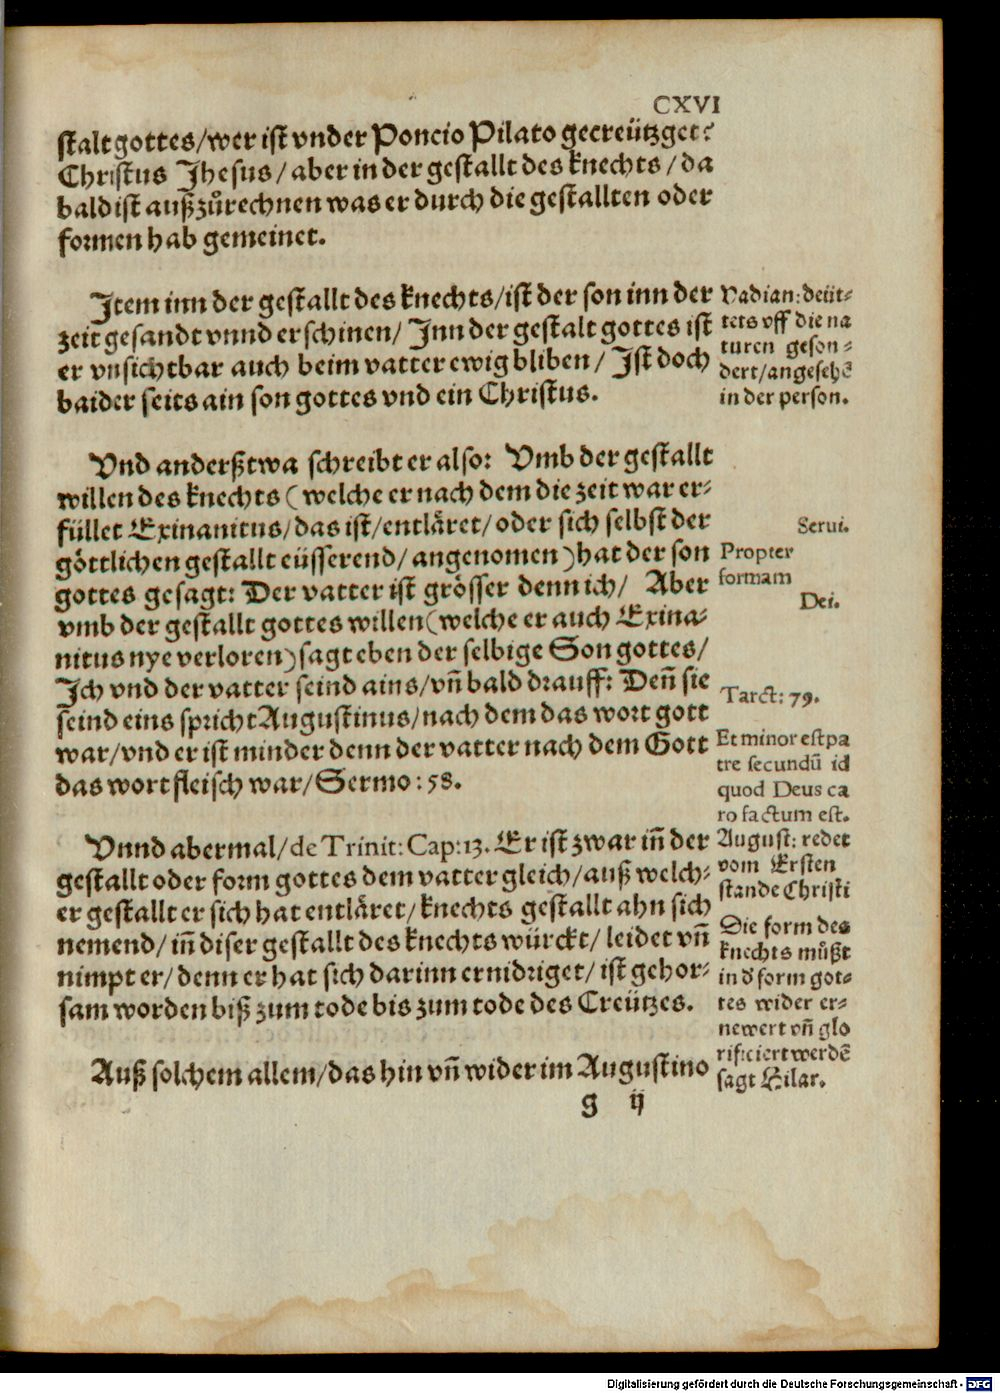 CXVI
stalt gottes/wer ist vnder Poncio Pilato gecreützget?
Christus Jhesus/aber in der gestallt des knechts/da
bald ist außzůrechnen was er durch die gestallten oder
formen hab gemeinet.
Item inn der gestallt des knechts/ist der son inn der
zeit gesandt vnnd erschinen/ Inn der gestalt gottes ist
er vnsichtbar auch beim vatter ewig bliben/ Ist doch
baider seits ain son gottes vnd ein Christus.
Vadian: deüt-
tets vff die na
turen geson-
dert/angesehē
in der person.
Vnd anderßtwa schreibt er also: Vmb der gestallt
willen des knechts (welche er nach dem die zeit war er-
füllet Exinanitus/das ist/entläret/oder sich selbst der
göttlichen gestallt eüsserend/angenomen) hat der son
gottes gesagt: Der vatter ist grösser denn ich/ Aber
vmb der gestallt gottes willen (welche er auch Exina-
nitus nye verloren) sagt eben der selbige Son gottes/
Ich vnd der vatter seind ains/vñ bald drauff: Deñ sie
seind eins spricht Augustinus/nach dem das wort gott
war/vnd er ist minder denn der vatter nach dem Gott
das wort fleisch war/Sermo: 58.
Serui.
Propter
formam
Dei.
Tarct: 79.
Et minor est pa
tre secundū id
quod Deus ca
ro factum est.
Vnnd abermal/de Trinit: Cap: 13. Er ist zwar iñ der
gestallt oder form gottes dem vatter gleich/auß welch-
er gestallt er sich hat entläret/knechts gestallt ahn sich
nemend/iñ diser gestallt des knechts würckt/leidet vñ
nimpt er/denn er hat sich darinn ernidriget/ist gehor-
sam worden biß zum tode bis zum tode des Creützes.
August: redet
vom Ersten
stande Christi
Die form des
knechts můßt
in d̕ form got-
tes wider er-
newert vñ glo
rificiert werdē
sagt Hilar.
Auß solchem allem/das hin vñ wider im Augustino
g ij
Digitalisierung gefördert durch die Deutsche Forschungsgemeinschaft - DFG